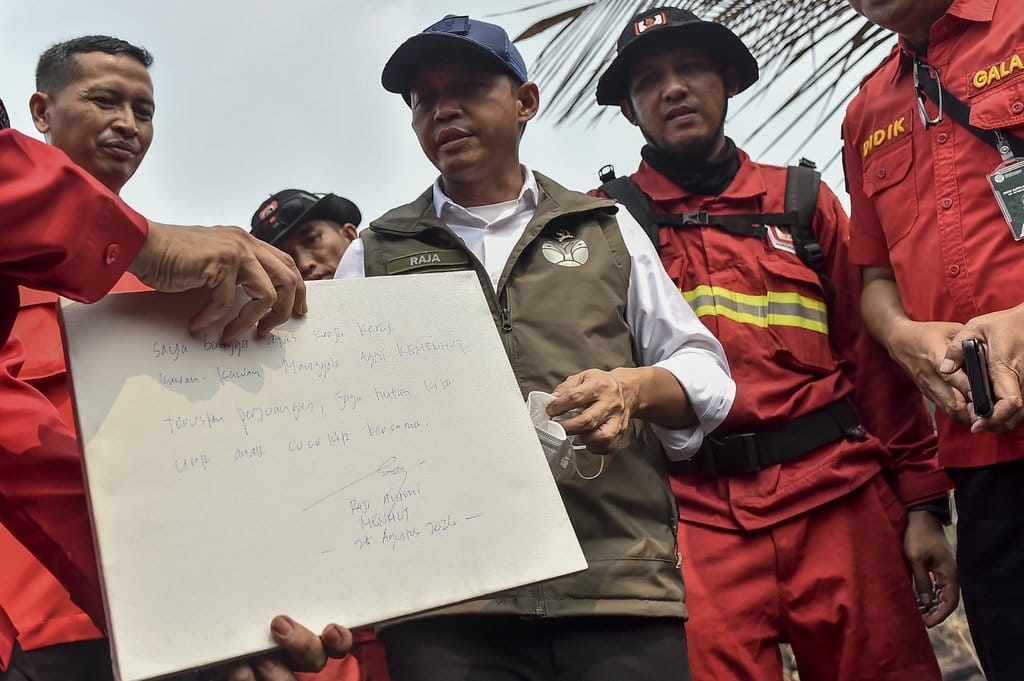 RAJA
DIDIK
GALA
Saya bangga atas kerja keras
kawan-kawan Manggala Agni KEMENHUT.
teruskan perjuangan, jaga hutan kita
untuk anak cucu kita bersama.
Raja Antoni
MENHUT
- 25 Agustus 2026 -